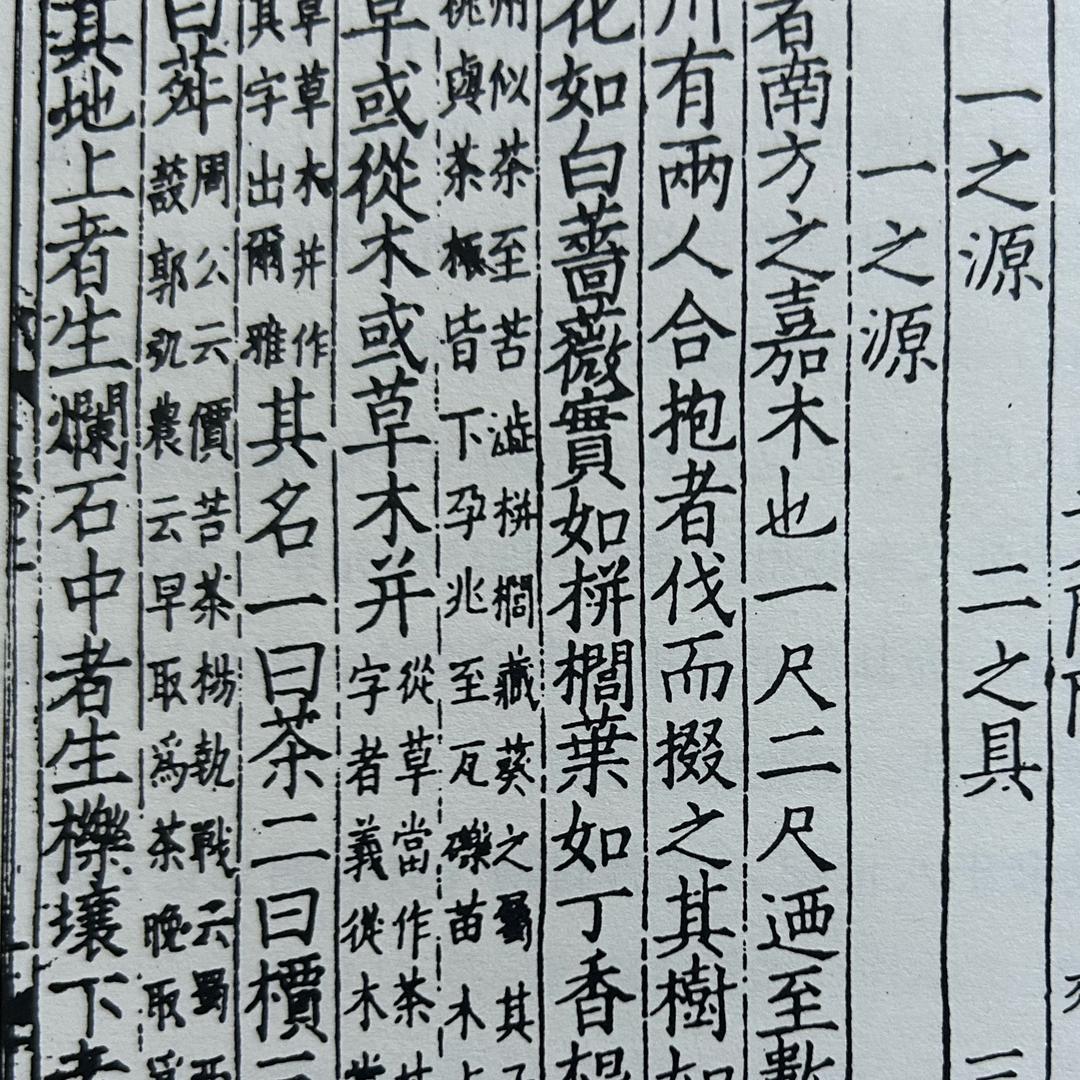 一之源 二之具 三
一之源
者南方之嘉木也一尺二尺迺至數
川有兩人合抱者伐而掇之其樹如
花如白薔薇實如栟櫚葉如丁香根
州似茶至苦澁栟櫚藏葵之屬其子
桃與茶根皆下孕兆至瓦礫苗木上
草或從木或草木并
從草當作茶
字者義從木當
草草木并作
其字出爾雅
其名一曰茶二曰檟三
曰荈
周公云檟苦茶楊執戟云蜀西
蔎郭弘農云早取爲茶晚取爲
其地上者生爛石中者生櫟壤下者